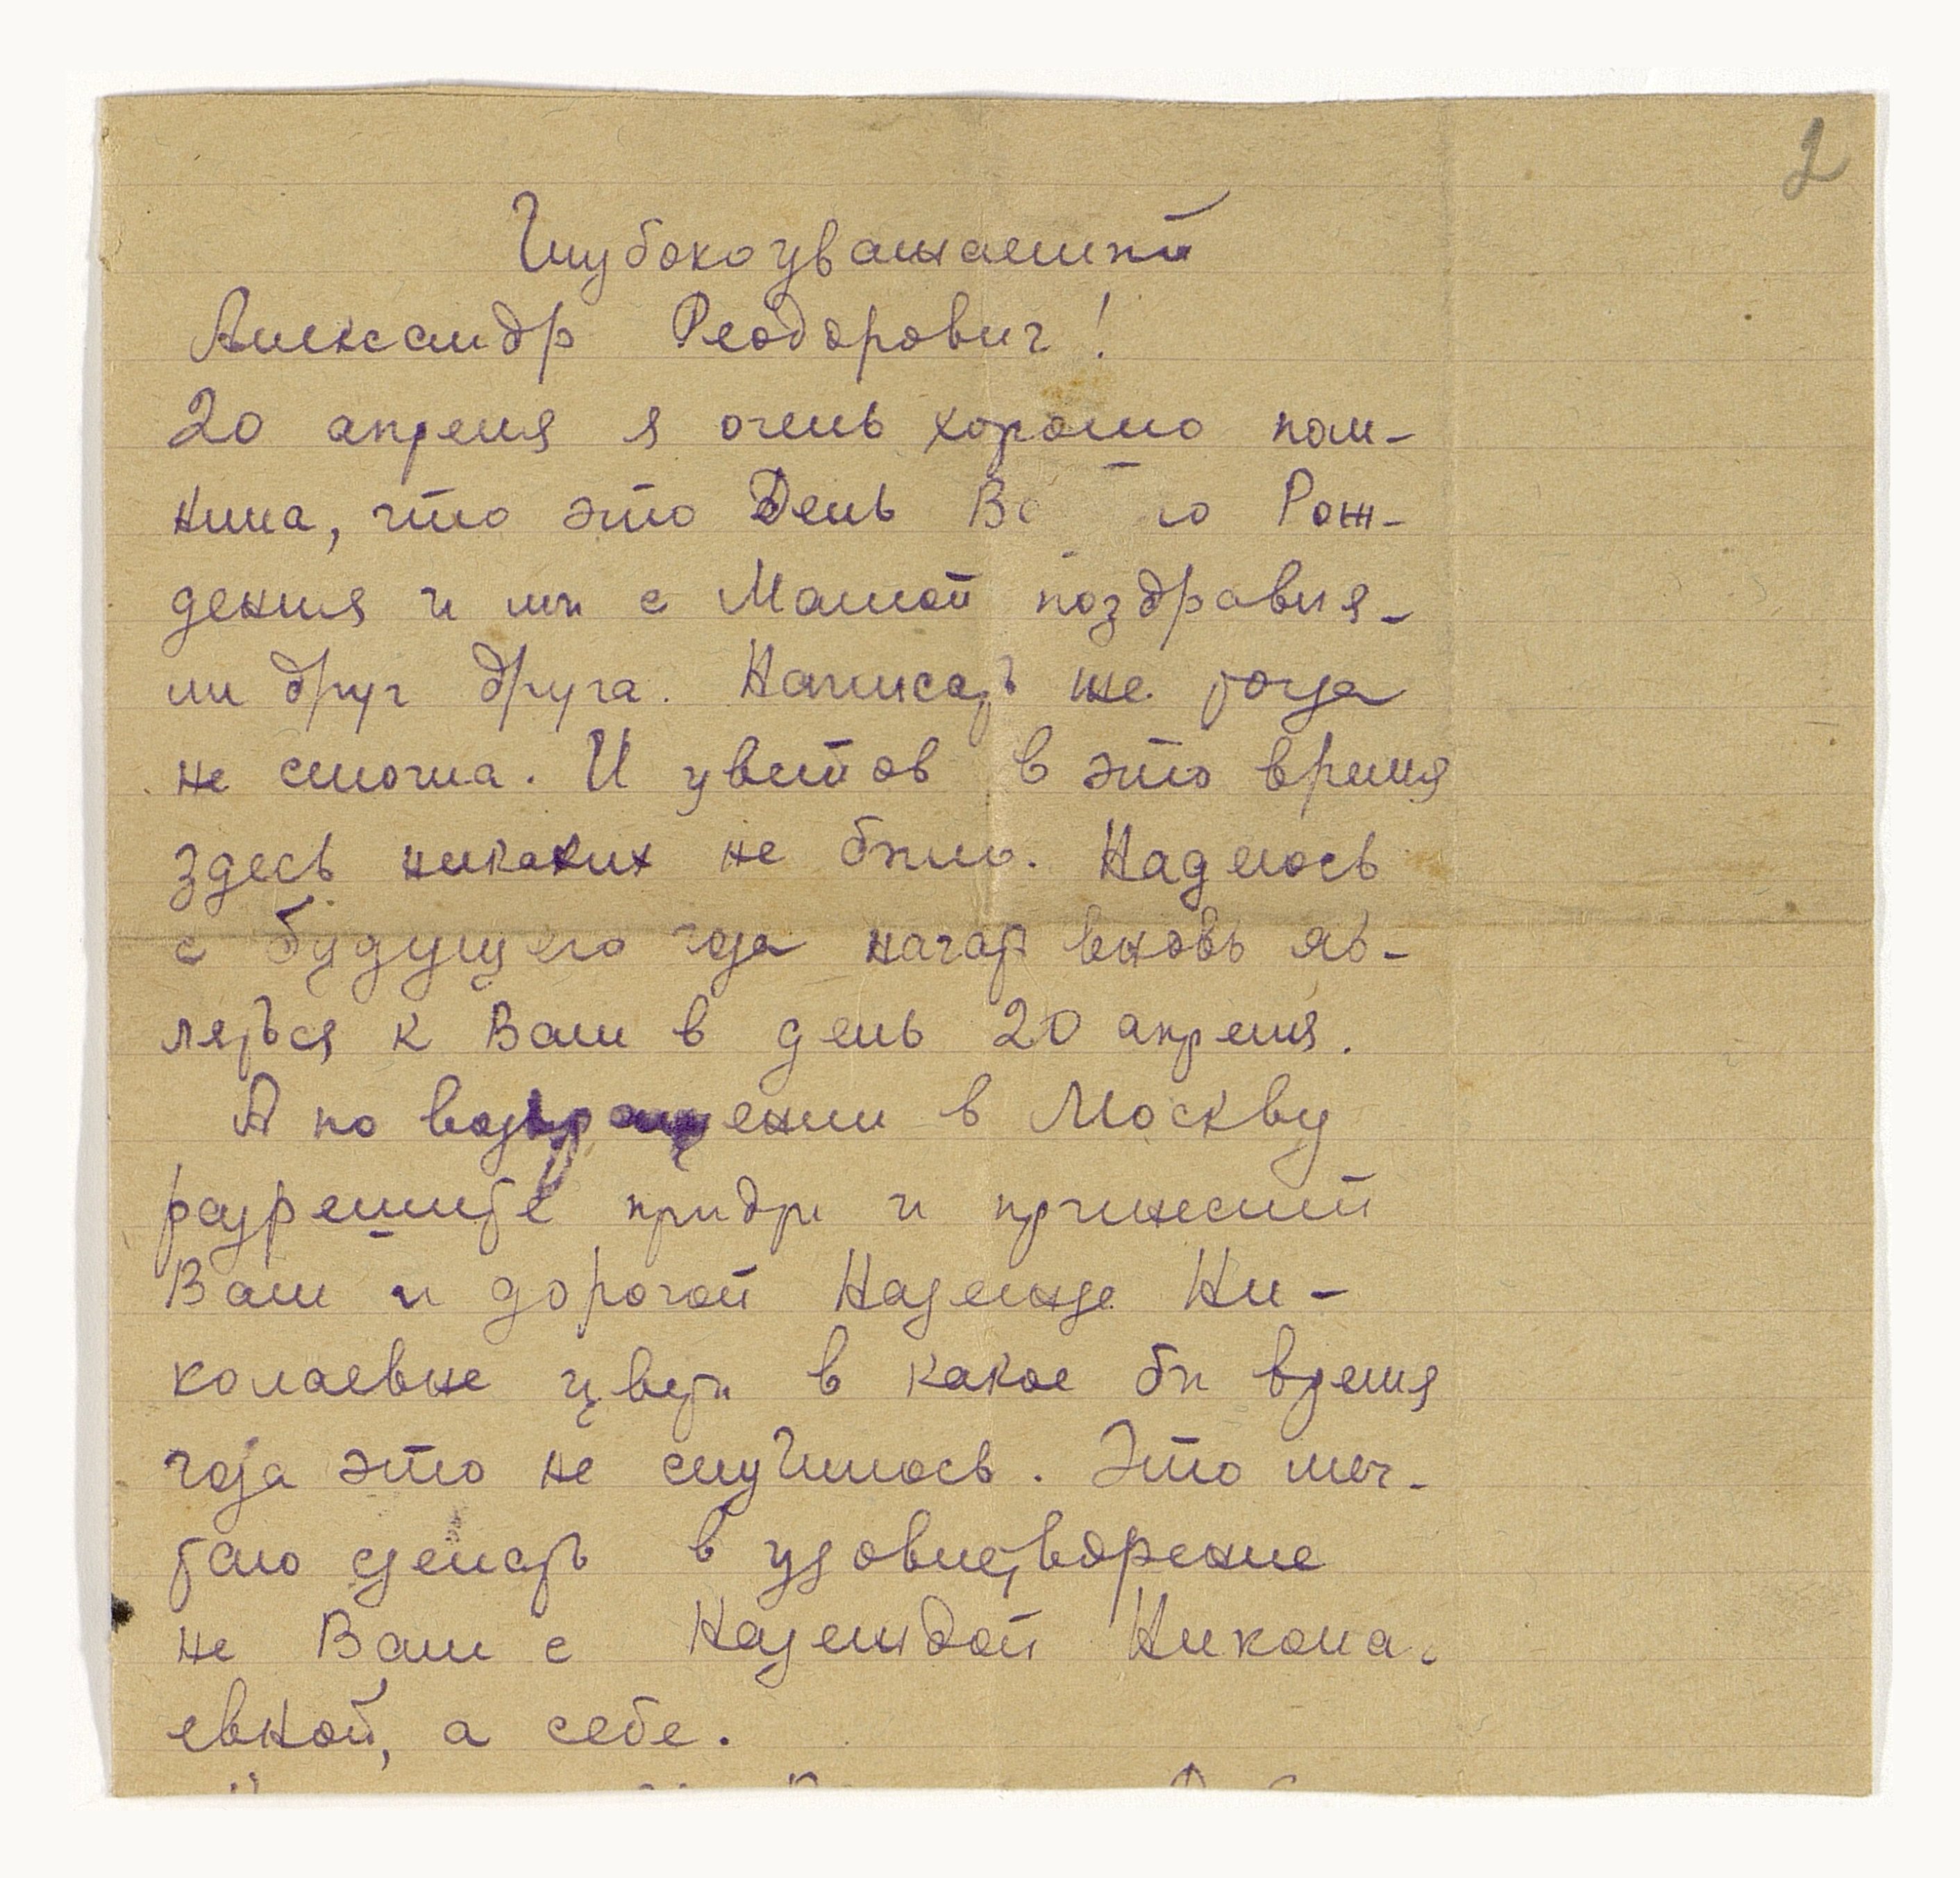 2
Глубокоуважаемый
Александр Феодорович!
20 апреля я очень хорошо пом-
нила, что это День Ва го Рож-
дения и мы с Машей поздравля-
ли друг друга. Написать же тогда
не смогла. И цветов в это время
здесь никаких не было. Надеюсь
с будущего года начать вновь яв-
ляться к Вам в день 20 апреля.
А по возвращении в Москву
разрешите придти и принести
Вам и дорогой Надежде Ни-
колаевне цветы в какое бы время
года это не случилось. Это меч-
таю сделать в удовлетворение
не Вам с Надеждой Никола-
евной, а себе.